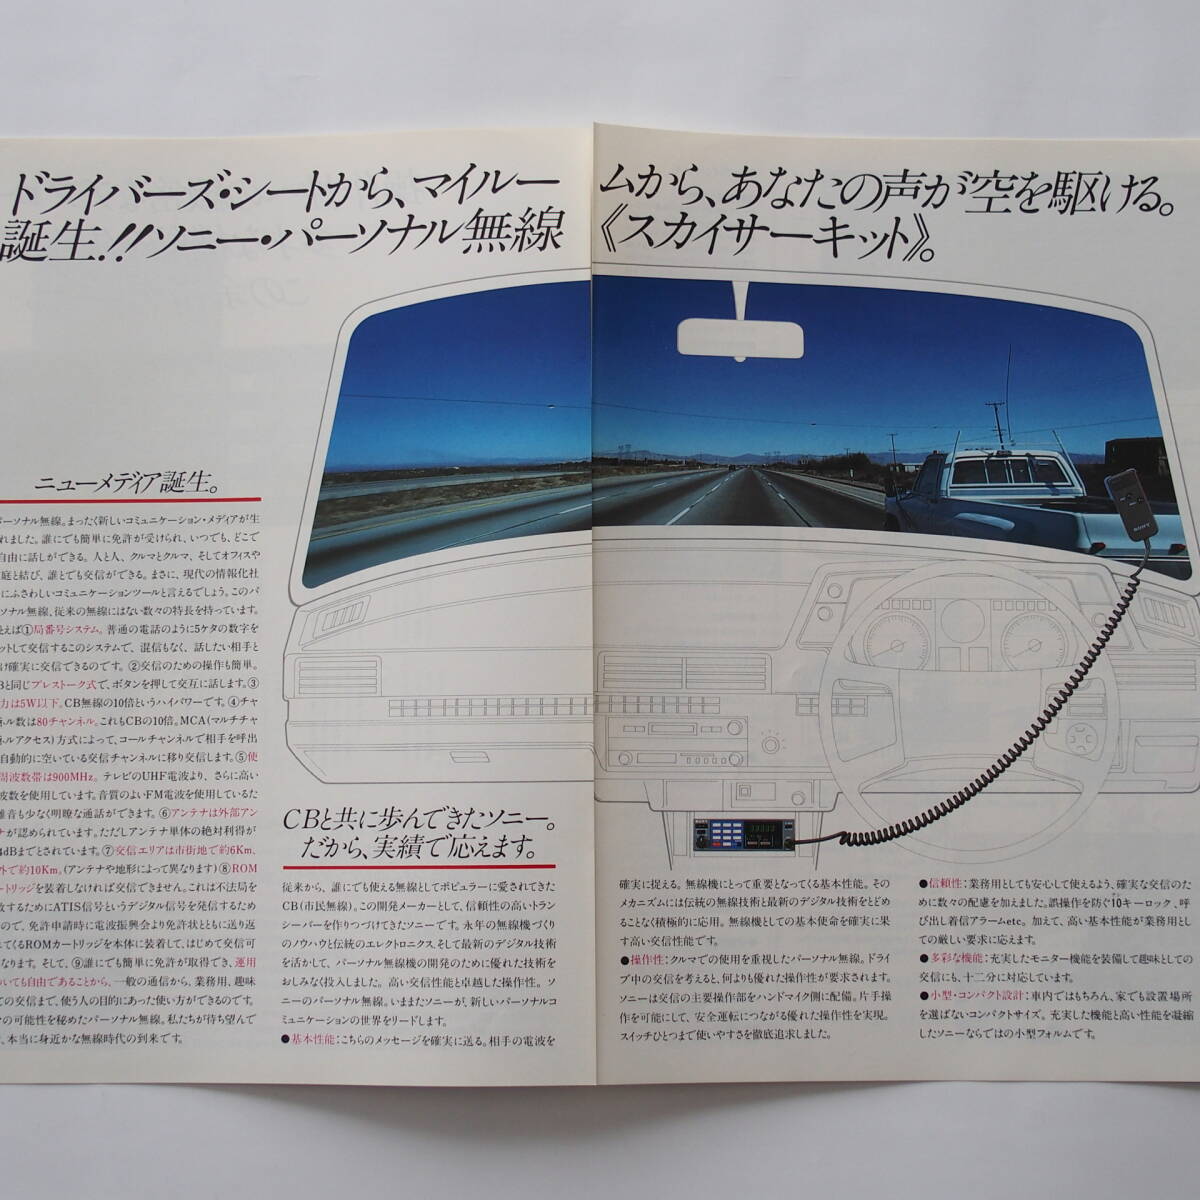 ドライバーズ・シートから、マイルームから、あなたの声が空を駆ける。
誕生!!ソニー・パーソナル無線《スカイサーキット》。
ニューメディア誕生。
パーソナル無線。まったく新しいコミュニケーション・メディアが生
れました。誰にでも簡単に免許が受けられ、いつでも、どこで
自由に話しができる。人と人、クルマとクルマ、そしてオフィスや
庭と結び、誰とでも交信ができる。まさに、現代の情報化社
にふさわしいコミュニケーションツールと言えるでしょう。このパ
ソナル無線、従来の無線にはない数々の特長を持っています。
えば①局番号システム。普通の電話のように5ケタの数字を
ットして交信するこのシステムで、混信もなく、話したい相手と
け確実に交信できるのです。②交信のための操作も簡単。
Bと同じプレストーク式で、ボタンを押して交互に話します。③
力は5W以下。CB無線の10倍というハイパワーです。④チャ
ネル数は80チャンネル。これもCBの10倍。MCA(マルチチャ
ネルアクセス)方式によって、コールチャンネルで相手を呼出
自動的に空いている交信チャンネルに移り交信します。⑤使
周波数帯は900MHz。テレビのUHF電波より、さらに高い
波数を使用しています。音質のよいFM電波を使用しているた
雑音も少なく明瞭な通話ができます。⑥アンテナは外部アン
ナが認められています。ただしアンテナ単体の絶対利得が
4dBまでとされています。⑦交信エリアは市街地で約6Km、
外で約10Km。(アンテナや地形によって異なります)⑧ROM
ートリッジを装着しなければ交信できません。これは不法局を
するためにATIS信号というデジタル信号を発信するため
ので、免許申請時に電波振興会より免許状とともに送り返
てくるROMカートリッジを本体に装着して、はじめて交信可
なります。そして、⑨誰にでも簡単に免許が取得でき、運用
いても自由であることから、一般の通信から、業務用、趣味
ての交信まで、使う人の目的にあった使い方ができるのです。
の可能性を秘めたパーソナル無線。私たちが待ち望んで
、本当に身近かな無線時代の到来です。
CBと共に歩んできたソニー。
だから、実績で応えます。
従来から、誰にでも使える無線としてポピュラーに愛されてきた
CB(市民無線)。この開発メーカーとして、信頼性の高いトラン
シーバーを作りつづけてきたソニーです。永年の無線機づくり
のノウハウと伝統のエレクトロニクス、そして最新のデジタル技術
を活かして、パーソナル無線機の開発のために優れた技術を
おしみなく投入しました。高い交信性能と卓越した操作性。ソ
ニーのパーソナル無線。いままたソニーが、新しいパーソナルコ
ミュニケーションの世界をリードします。
●基本性能:こちらのメッセージを確実に送る。相手の電波を
確実に捉える。無線機にとって重要となってくる基本性能。その
メカニズムには伝統の無線技術と最新のデジタル技術をとどめ
ることなく積極的に応用。無線機としての基本使命を確実に果
す高い交信性能です。
●操作性:クルマでの使用を重視したパーソナル無線。ドライ
ブ中の交信を考えると、何よりも優れた操作性が要求されます。
ソニーは交信の主要操作部をハンドマイク側に配備。片手操
作を可能にして、安全運転につながる優れた操作性を実現。
スイッチひとつまで使いやすさを徹底追求しました。
●信頼性:業務用としても安心して使えるよう、確実な交信のた
めに数々の配慮を加えました。誤操作を防ぐ10キーロック、呼
び出し着信アラームetc。加えて、高い基本性能が業務用とし
ての厳しい要求に応えます。
●多彩な機能:充実したモニター機能を装備して趣味としての
交信にも、十二分に対応しています。
●小型・コンパクト設計:車内ではもちろん、家でも設置場所
を選ばないコンパクトサイズ。充実した機能と高い性能を凝縮
したソニーならではの小型フォルムです。
SONY